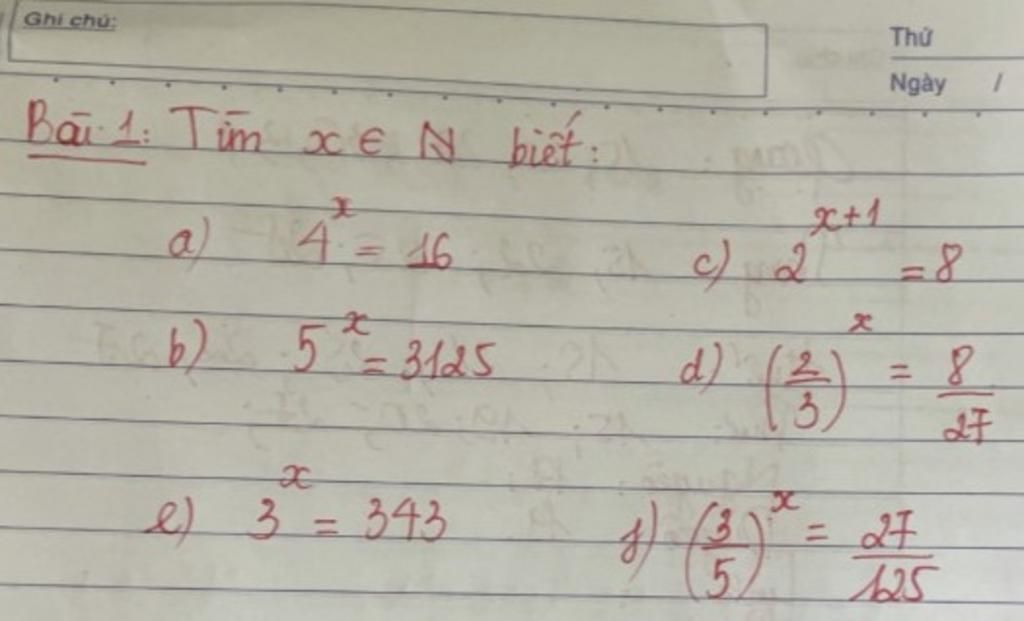 Ghi chú:
Thứ
Ngày /
Bài 1: Tìm x ∈ ℕ biết:
a) 4^x = 16
c) 2^(x+1) = 8
b) 5^x = 3125
d) (2/3)^x = 8/27
e) 3^x = 343
f) (3/5)^x = 27/125